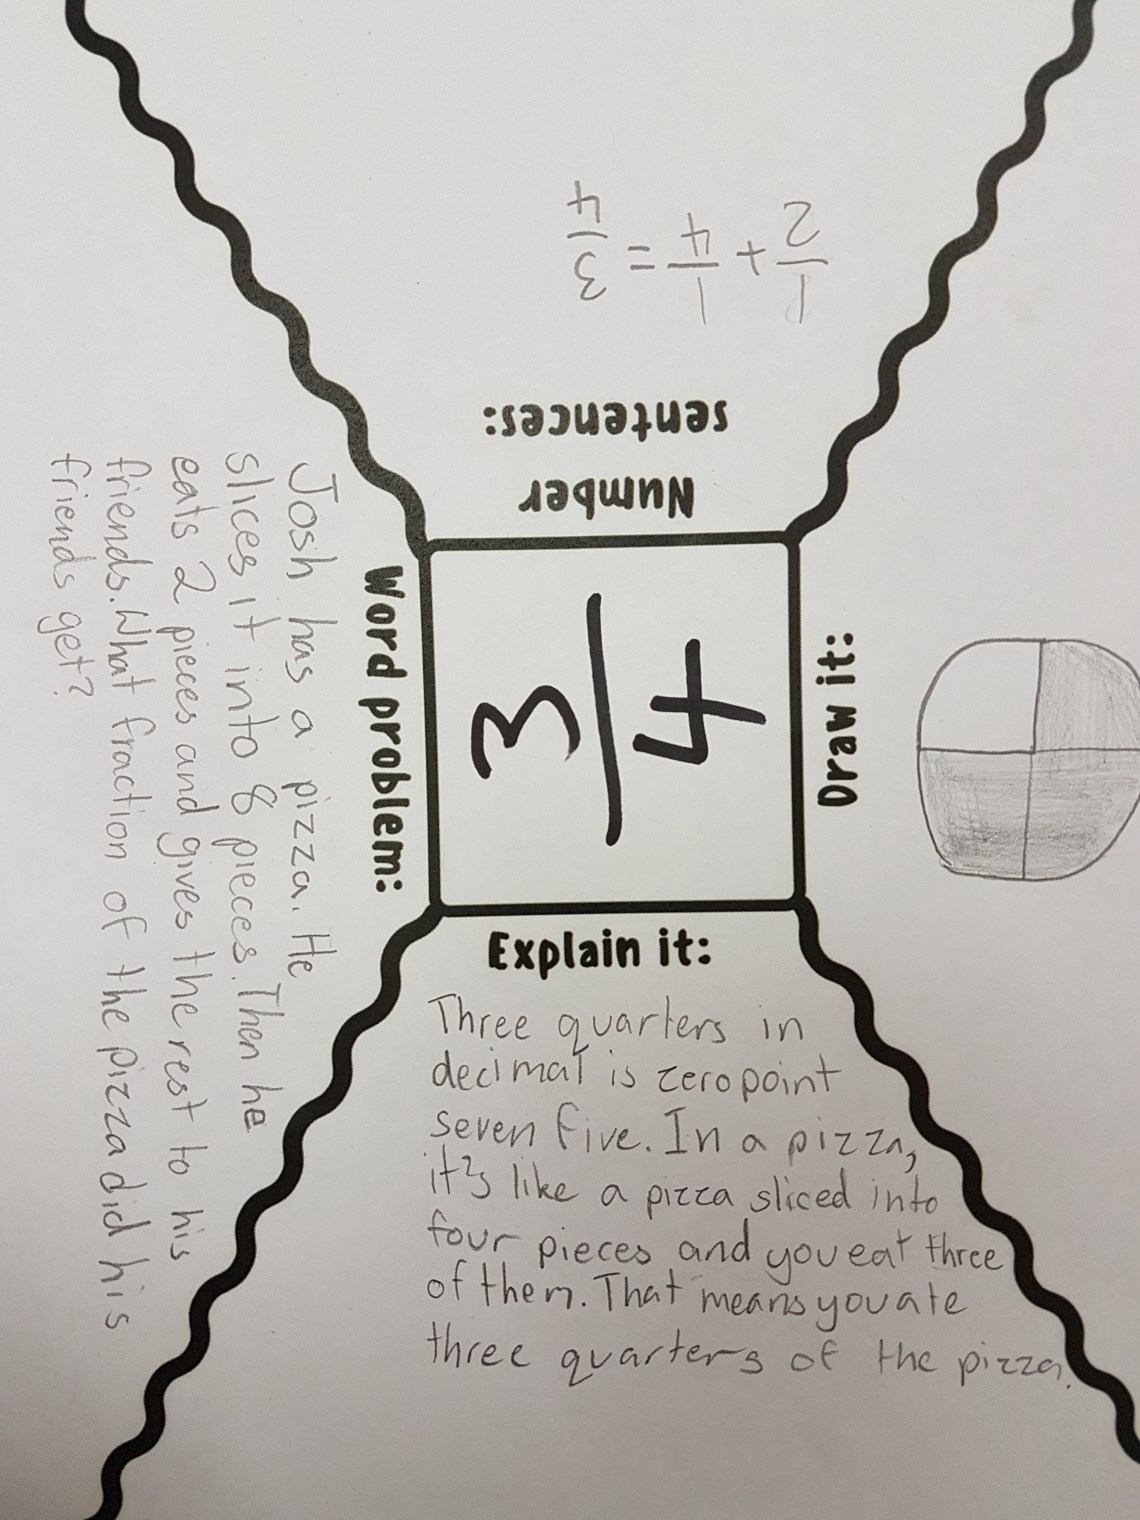 Number
sentences:
1/2 + 1/4 = 3/4
Word problem:
Josh has a pizza. He
slices it into 8 pieces. Then he
eats 2 pieces and gives the rest to his
friends. What fraction of the pizza did his
friends get?
3/4
Draw it:
Explain it:
Three quarters in
decimal is zero point
seven five. In a pizza,
it's like a pizza sliced into
four pieces and you eat three
of them. That means you ate
three quarters of the pizza.